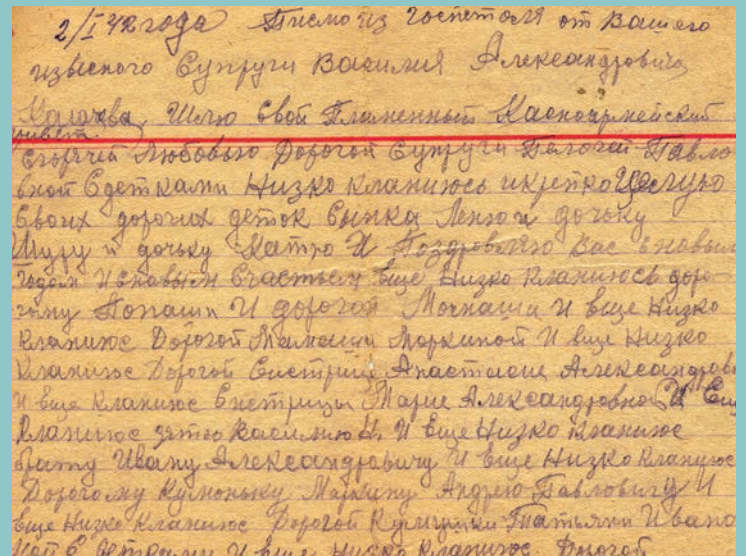 2/I 42 года Писмо из госпеталя от вашего
извесного Супруги Василия Александровича
Шлю свой Пламенный Касноармейский
привет
Сгорячей Любовью Дорогой Супруги Павло
вной Сдетками Низко кланиюсь икрепко Целую
Своих дорогих деток Сынка Леню и дочьку
Шуру и дочьку Катю И Поздровляю вас Сновым
годом И Сновым Счастьем Еще Низко кланиюсь доро-
гому Попаши И дорогой Момаши И еще Низко
кланиюс Дорогой Мамаши Моркиной И еще Низко
кланиюс Дорогой Систрицы Анастасие Александровн
И еще кланиюс Систрицы Марие Александровной И Ещ
кланиюс зятю Василию И еще Низко кланиюс
брату Ивану Александровичу И еще Низко кланиюс
Дорогому Кумоньку Маркину Андрею Павловичу И
еще Низко кланиюс Дорогой Кумушки Татьяни Ивано
ной С детками И еще Низко кланиюс Дорогой